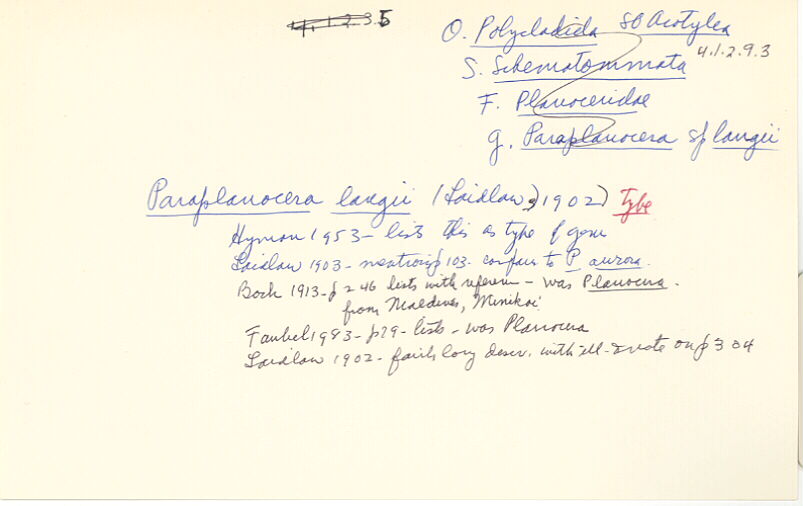 4.1.2.3.5
O. Polycladida SO Acotylea
4.1.2.9.3
S. Schematommata
F. Planoceridae
g. Paraplanocera sp langii
Paraplanocera langii (Laidlaw, 1902) Type
Hyman 1953 - lists this as type of genus
Laidlaw 1903 - mentions p 103. compares to P aurora.
Bock 1913 - p 246 lists with referen - was Planocera.
from Maldives, Minikoi
Faubel 1983 - p79 - lists - was Planocera
Laidlaw 1902 - fairly long descr. with ill - & note on p 304